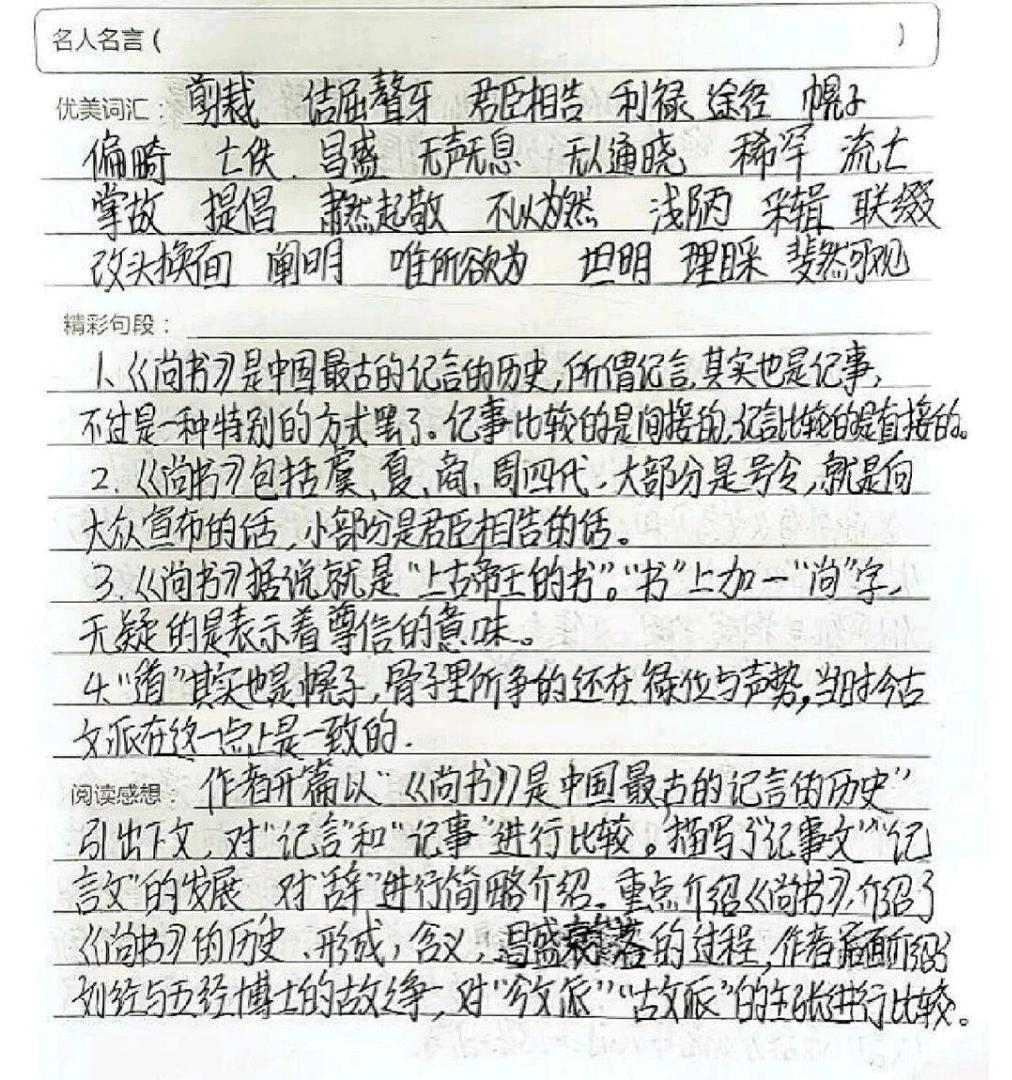 名人名言（ ）
优美词汇： 剪裁 佶屈聱牙 君臣相告 利禄 途径 幌子
偏畸 亡佚 昌盛 无声无息 无人通晓 稀罕 流亡
掌故 提倡 肃然起敬 不以为然 浅陋 采辑 联缀
改头换面 阐明 唯所欲为 坦明 理睬 斐然可观
精彩句段：
1、《尚书》是中国最古的记言的历史，所谓记言，其实也是记事，
不过是一种特别的方式罢了。记事比较的是间接的，记言比较的是直接的。
2、《尚书》包括虞、夏、商、周四代，大部分是号令，就是向
大众宣布的话，小部分是君臣相告的话。
3、《尚书》据说就是“上古帝王的书”。“书”上加一“尚”字，
无疑的是表示着尊信的意味。
4、“道”其实也是幌子，骨子里所争的还在禄位与声势，当时今古
文派在这一点上是一致的．
阅读感想： 作者开篇以“《尚书》是中国最古的记言的历史”
引出下文，对“记言”和“记事”进行比较。描写了“记事文”“记
言文”的发展 对“辞”进行简略介绍。重点介绍《尚书》，介绍了
《尚书》的历史、形成，含义，昌盛衰落的过程，作者后面介绍了
刘歆与五经博士的古故之争，对“今文派”“古文派”的主张进行比较。